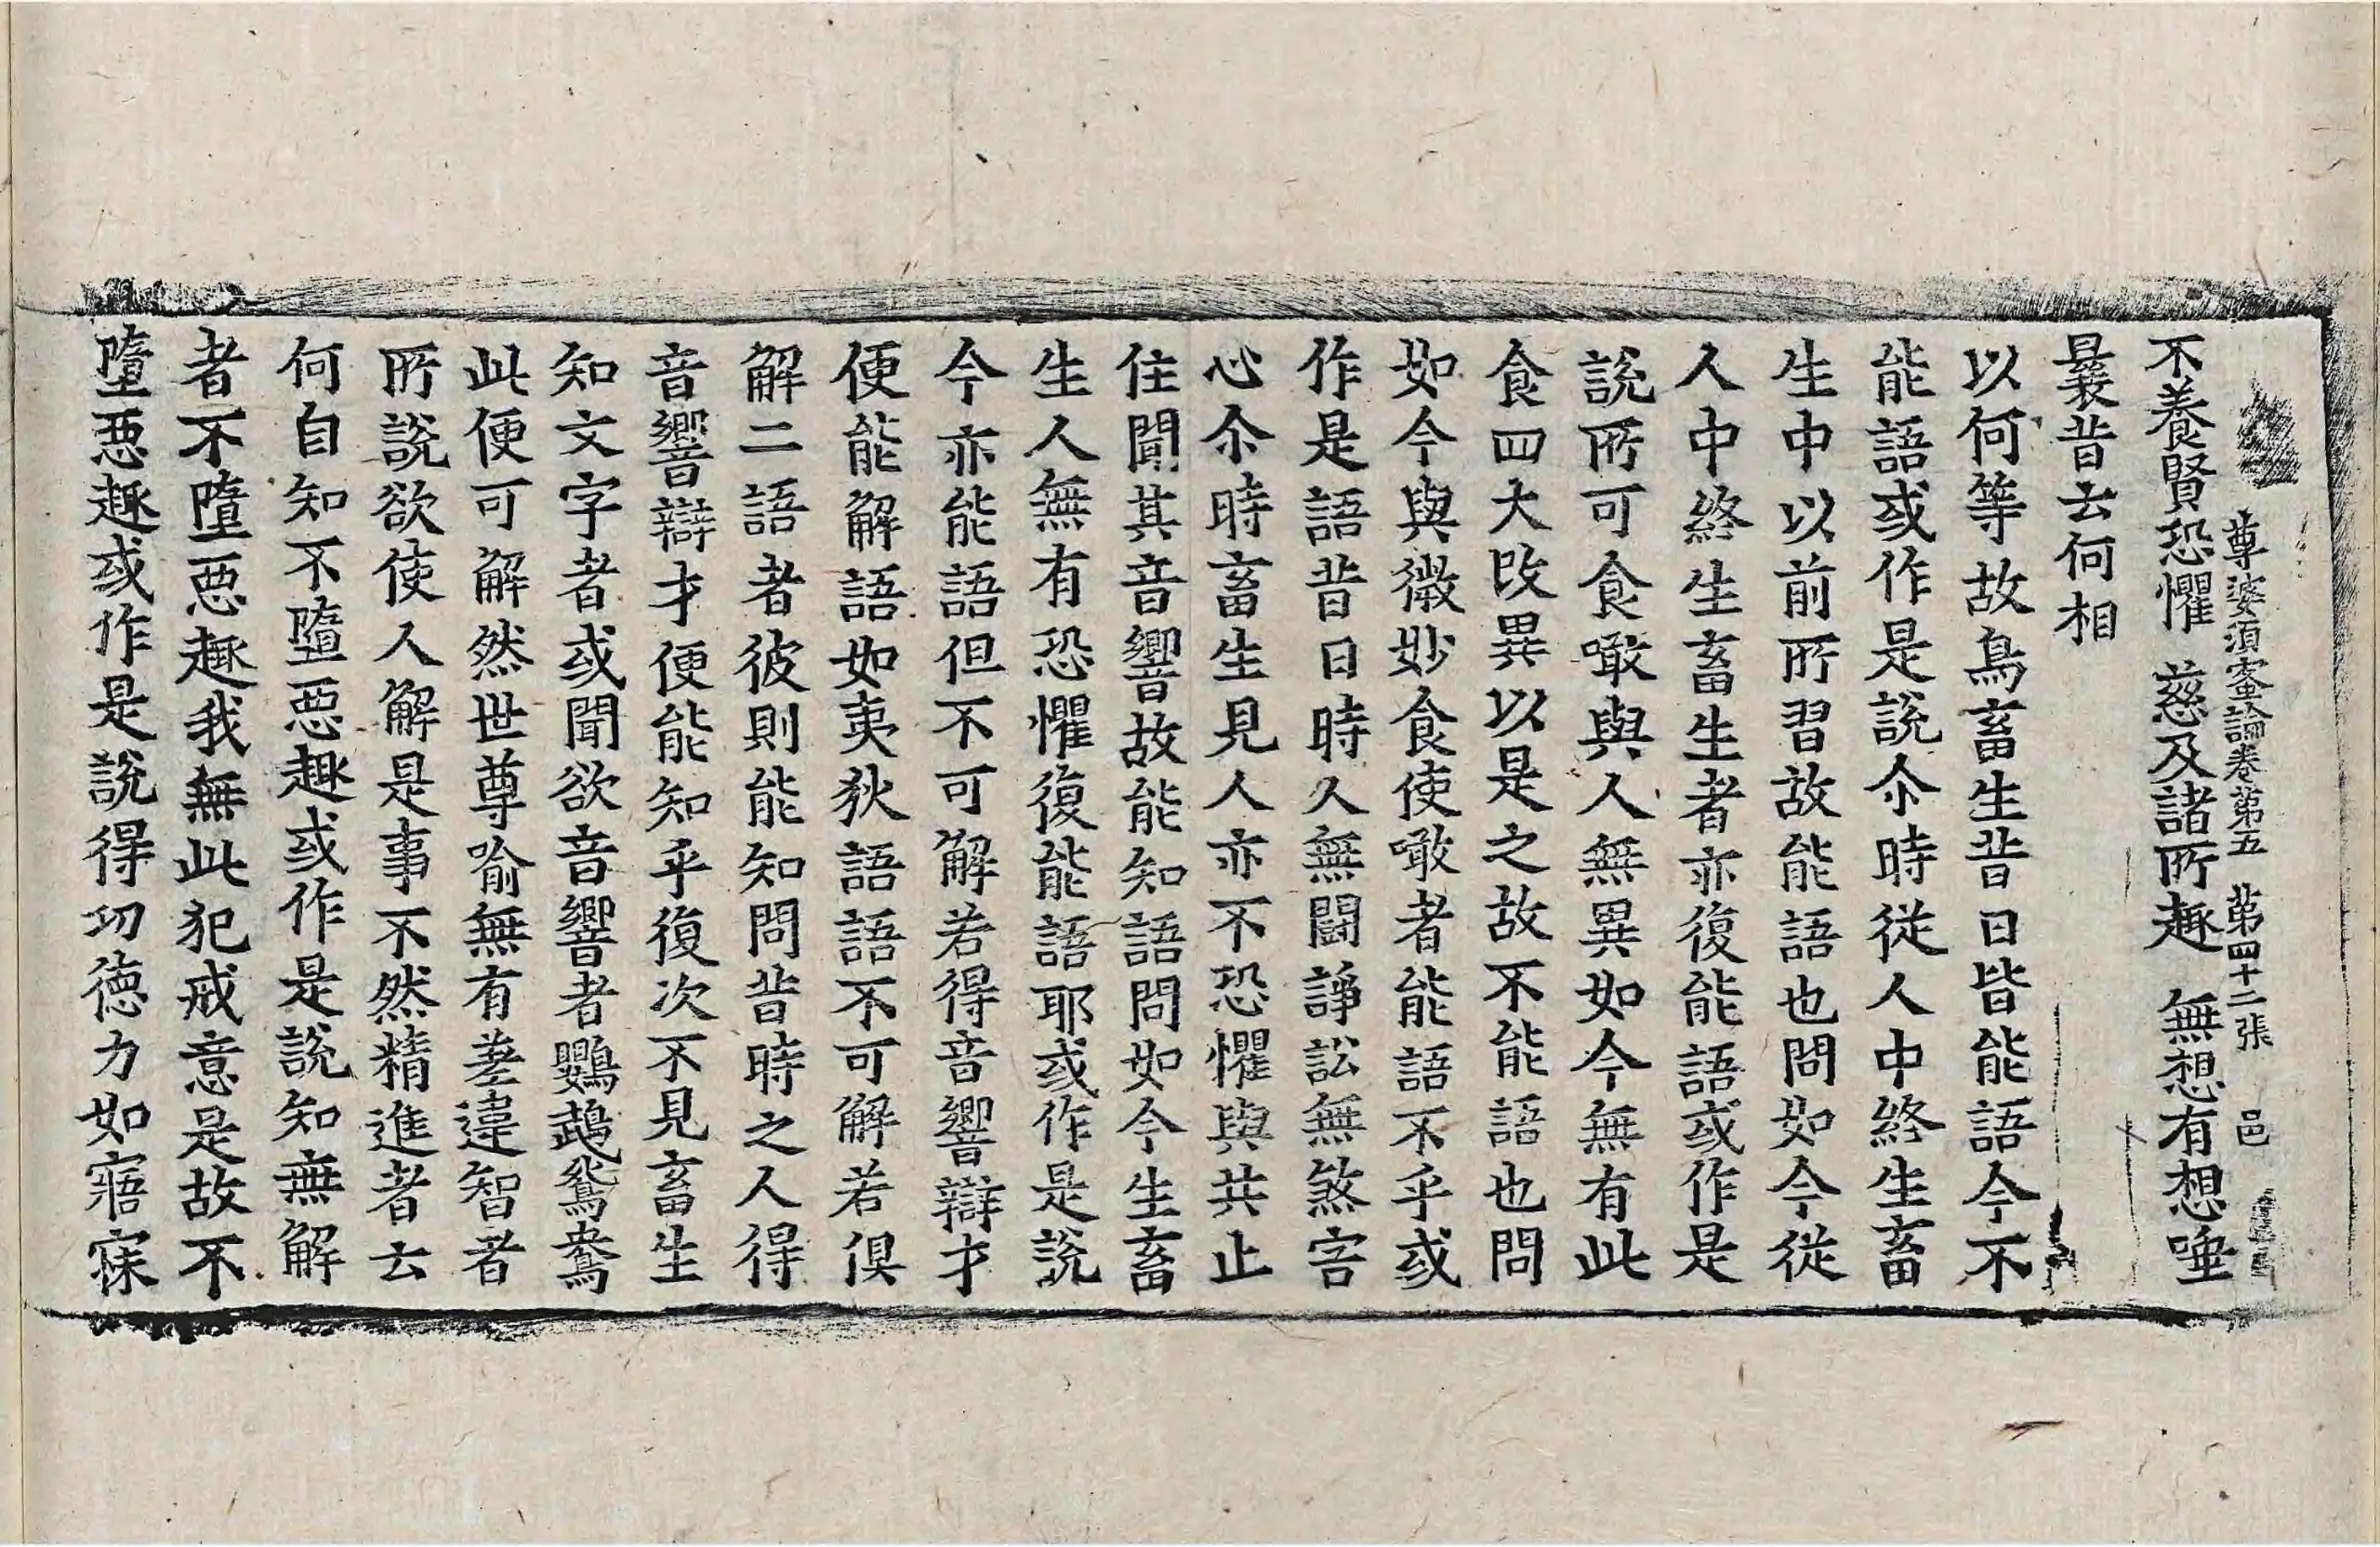 尊婆須蜜論卷第五　第四十二張　邑
不養賢恐懼　慈及諸所趣　無想有想唾
曩昔去何相
以何等故鳥畜生昔日皆能語今不
能語或作是說尒時從人中終生畜
生中以前所習故能語也問如今從
人中終生畜生者亦復能語或作是
說所可食噉與人無異如今無有此
食四大改異以是之故不能語也問
如今與微妙食使噉者能語不乎或
作是語昔日時久無鬪諍訟無煞害
心尒時畜生見人亦不恐懼與共止
住聞其音響故能知語問如今生畜
生人無有恐懼復能語耶或作是說
今亦能語但不可解若得音響辯才
便能解語如夷狄語語不可解若俱
解二語者彼則能知問昔時之人得
音響辯才便能知乎復次不見畜生
知文字者或聞欲音響者鸚鵡鴛鴦
此便可解然世尊喻無有差違智者
所說欲使人解是事不然精進者去
何自知不墮惡趣或作是說知無解
者不墮惡趣我無此犯戒意是故不
墮惡趣或作是說得功德力如寤寐